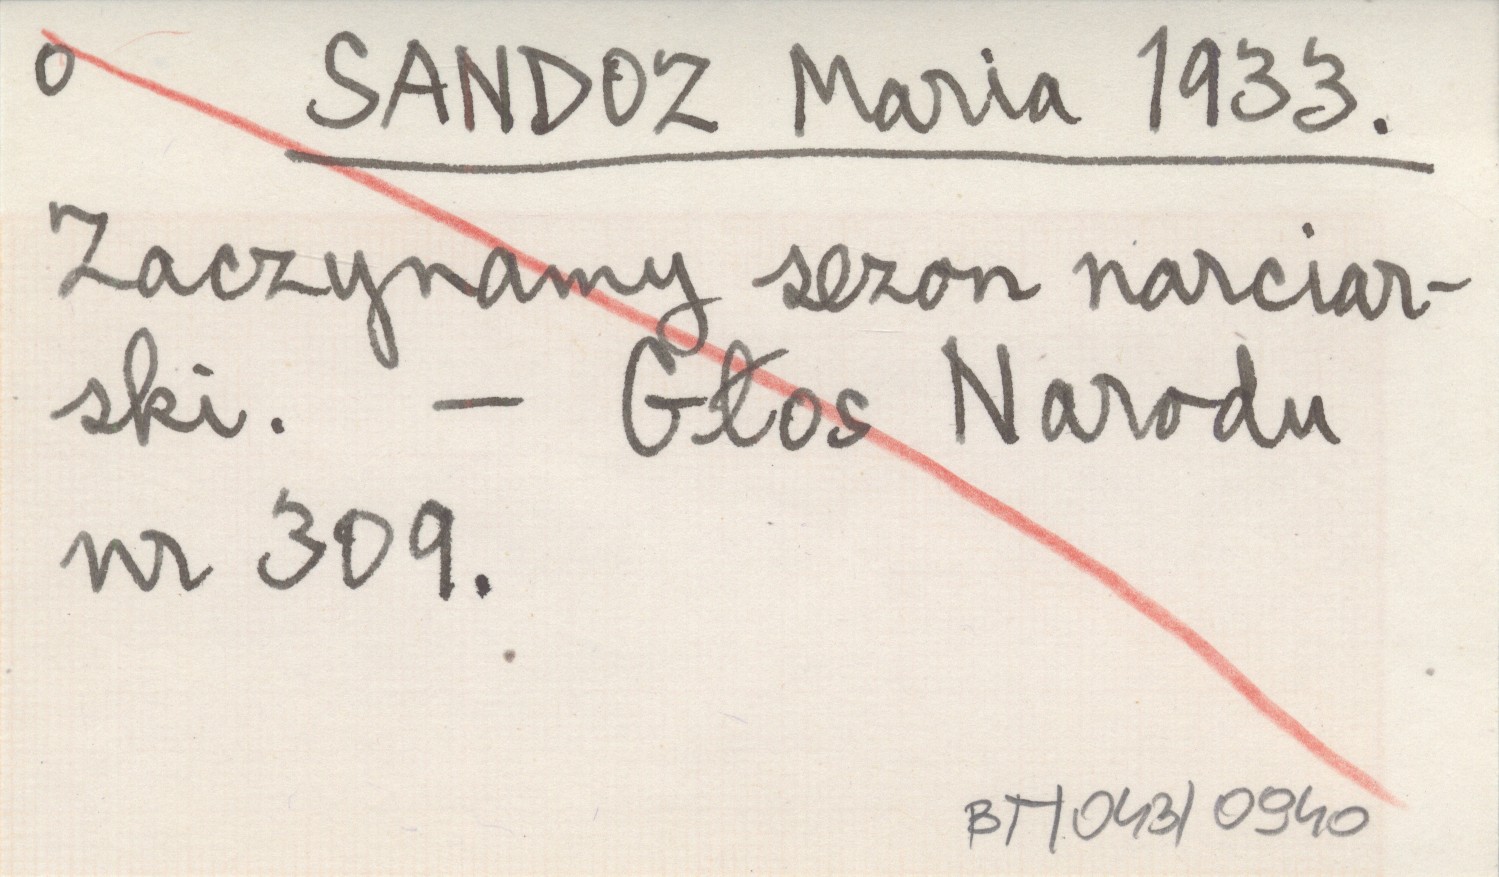 o SANDOZ Maria 1933.
Zaczynamy sezon narciar-
ski. — Głos Narodu
nr 309.
BT/043/0940